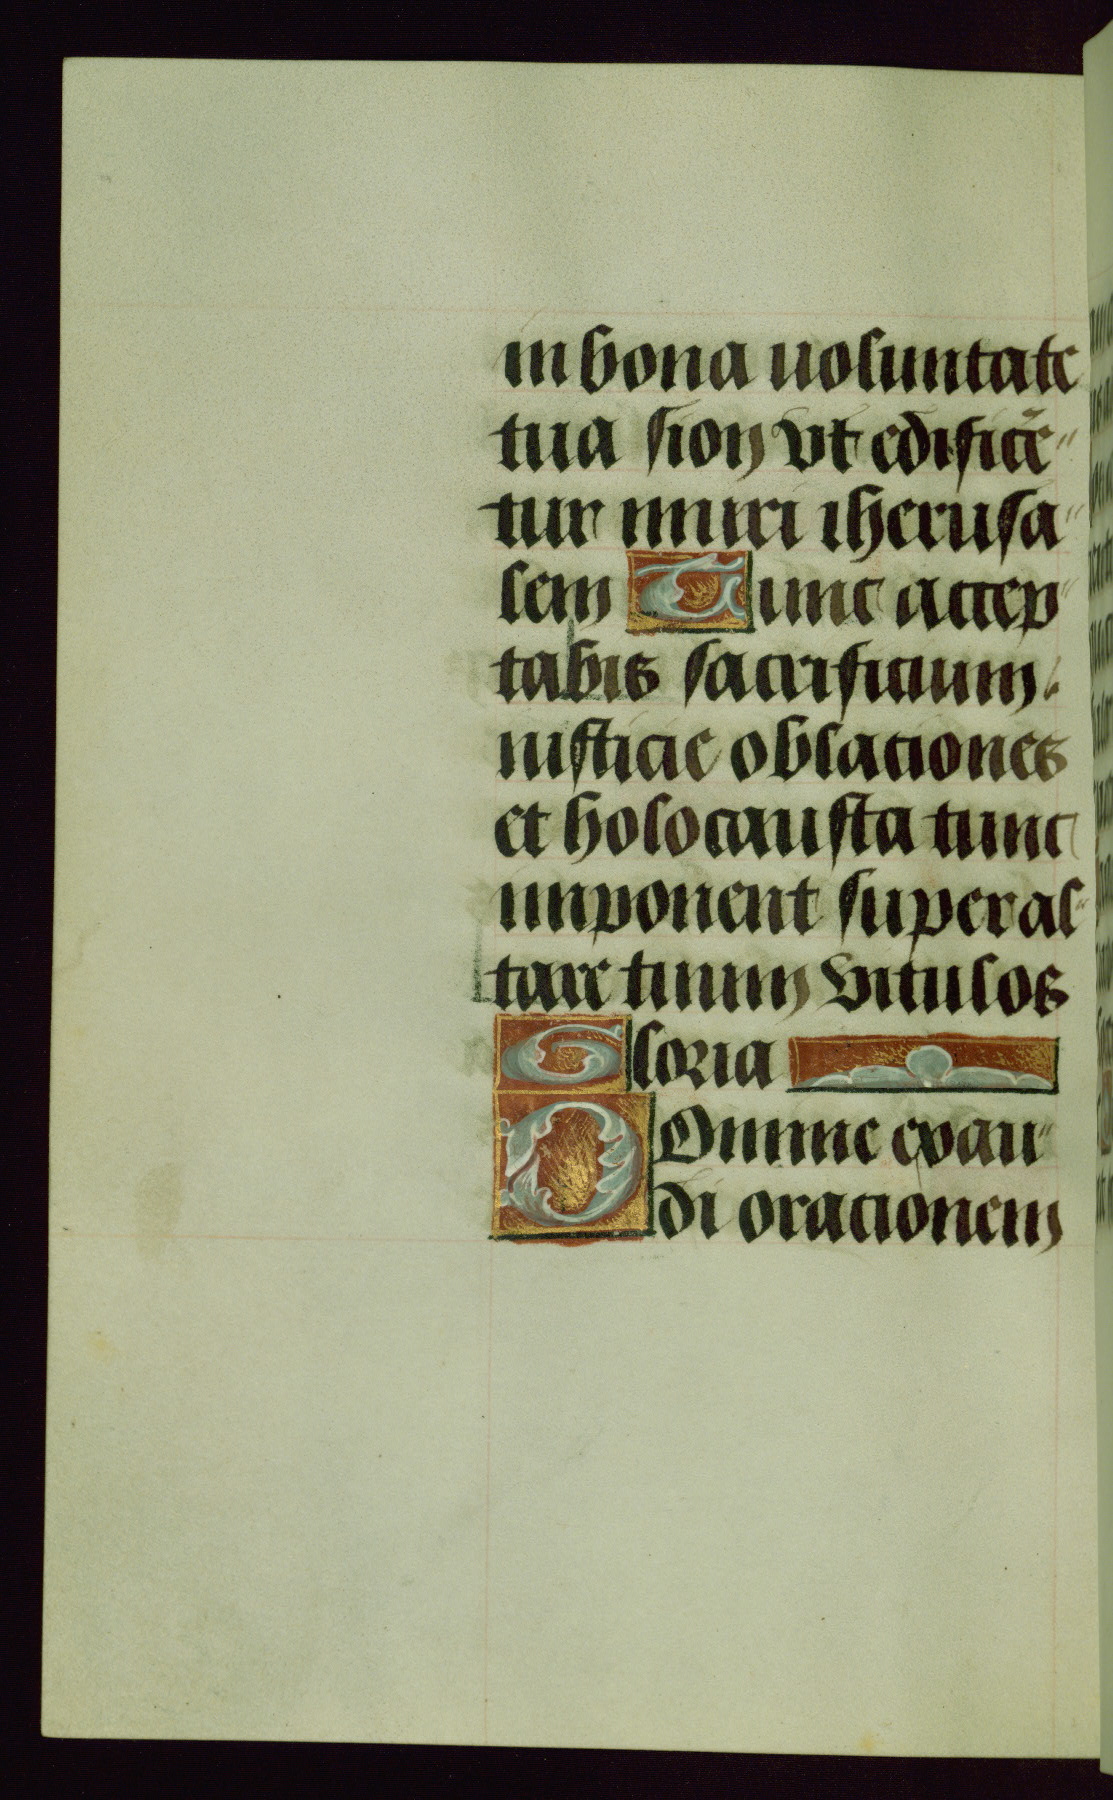 in bona uoluntate
tua sion vt edificē-
tur muri iherusa-
lem Tunc accep-
tabis sacrificium
iusticie oblationes
et holocausta tunc
imponent super al-
tare tuum vitulos
Gloria
DOmine exau-
di orationem